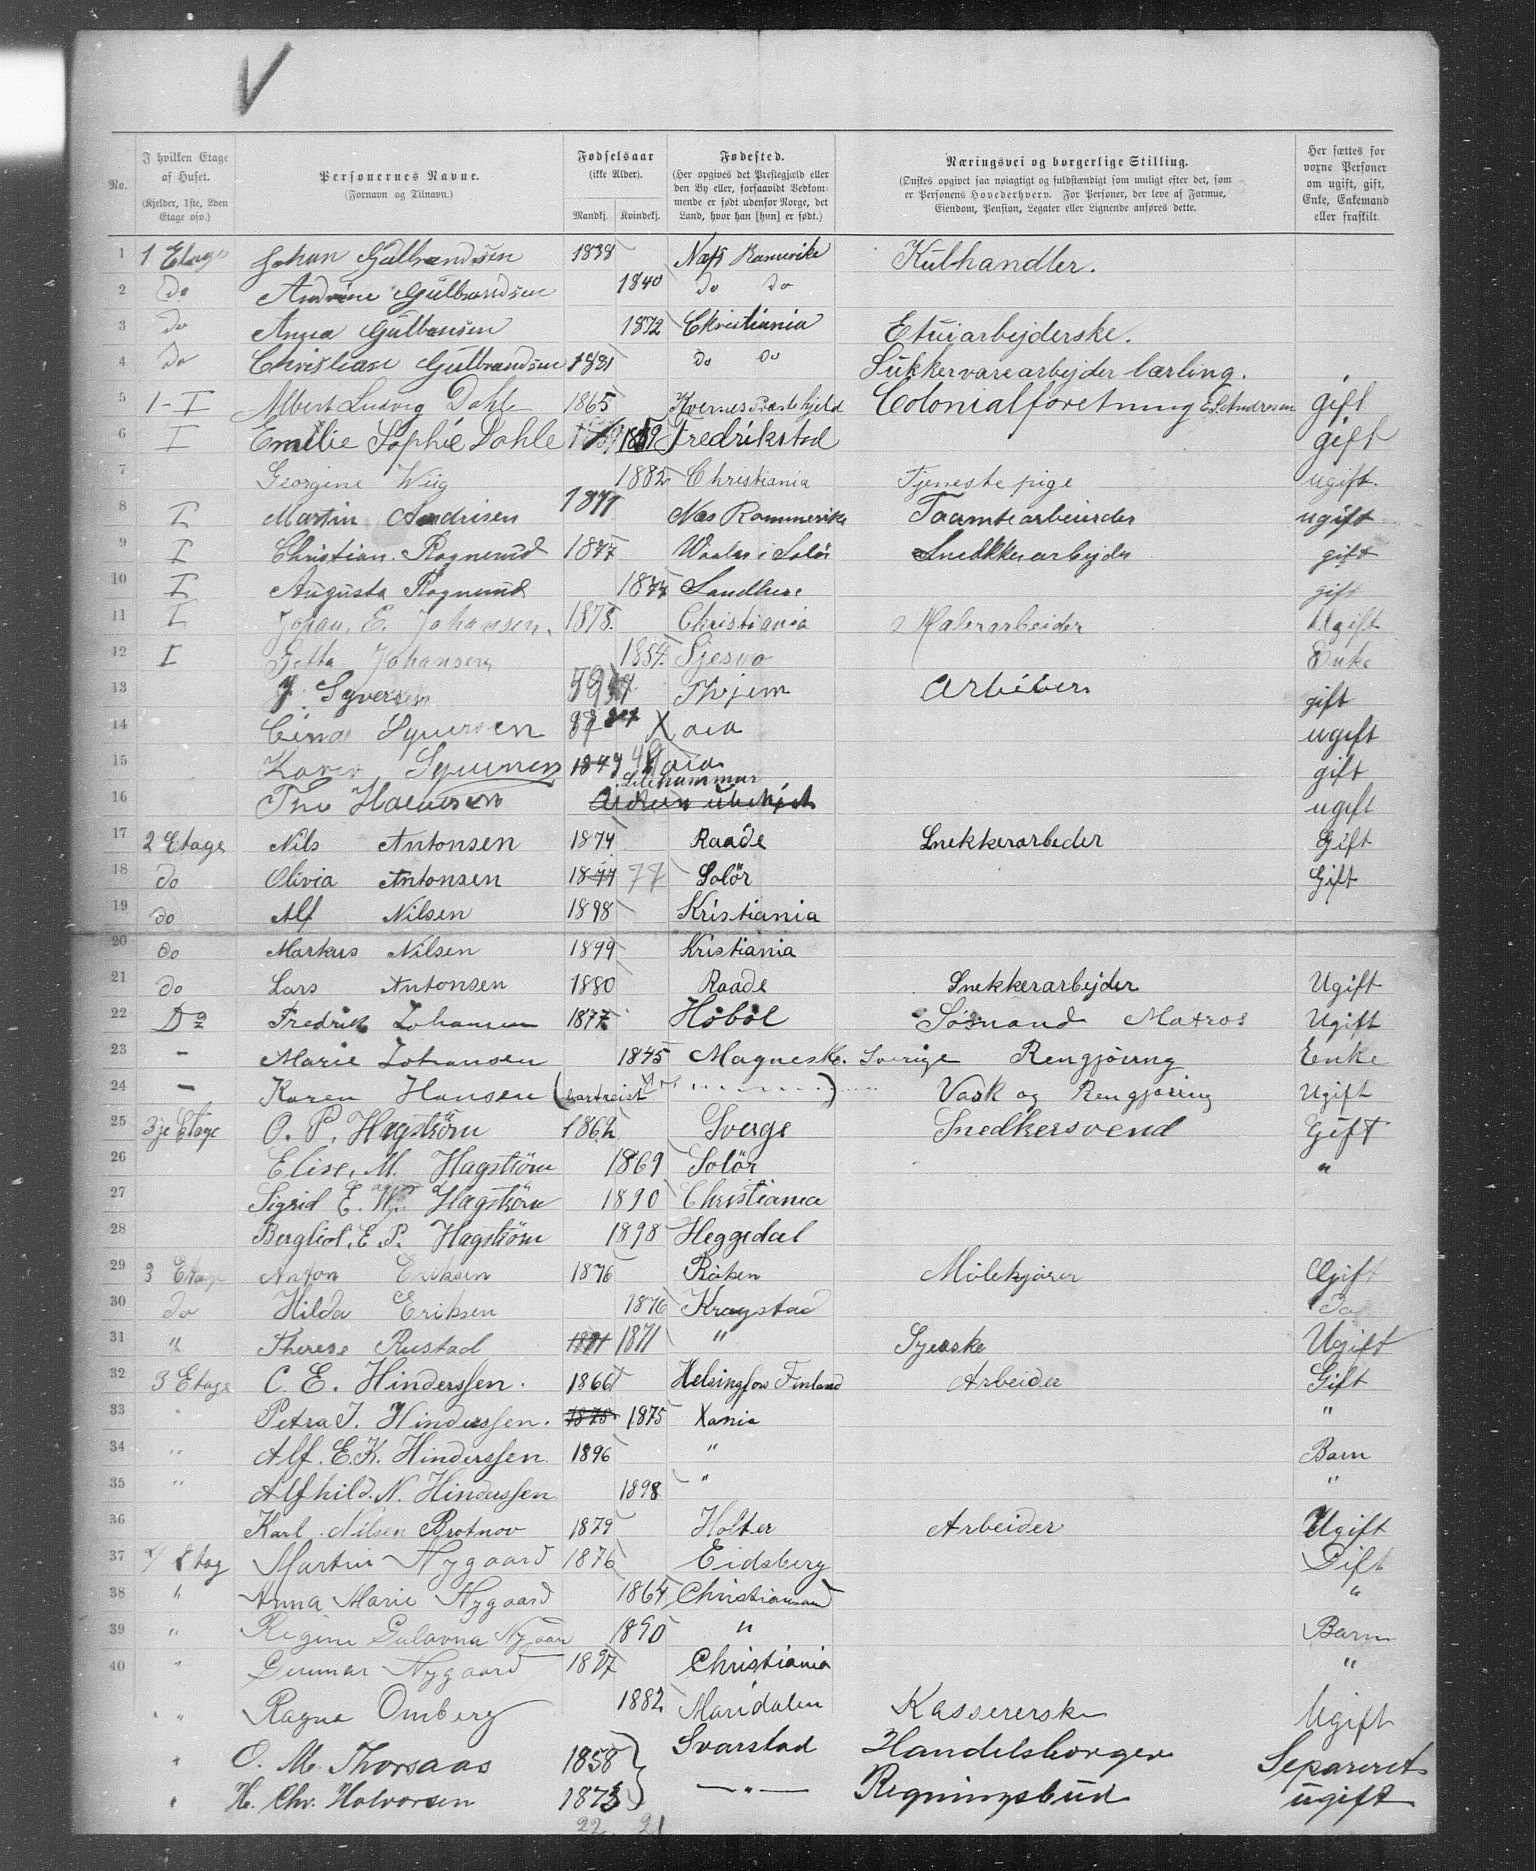 V
No.
I hvilken Etage af Huset.
(Kjelder, 1ste, 2den Etage osv.)
Personernes Navne.
(Fornavn og Tilnavn.)
Fødselsaar
(ikke Alder).
Mandkj. Kvindekj.
Fødested.
(Her opgives det Præstegjæld eller den By eller, forsaavidt Vedkommende er født udenfor Norge, det Land, hvor han [hun] er født.)
Næringsvei og borgerlige Stilling.
(Ønskes opgivet saa nøiagtigt og fuldstændigt som muligt efter det, som er Personens Hovederhverv. For Personer, der leve af Formue, Eiendom, Pension, Legater eller Lignende anføres dette.
Her sættes for voxne Personer om ugift, gift, Enke, Enkemand eller fraskilt.
1 1 Etage Johan Gulbrandsen 1838 Næs Romerike Kulhandler.
2 do Andrine Gulbrandsen 1840 do do
3 do Anna Gulbransen 1872 Christiania Etuiarbejderske.
4 do Christian Gulbrandsen 1881 do do Sukkervarearbejder lærling.
5 1-I Albert Ludvig Dahle 1865 Kvernes Præstehjeld Colonialforetning E. S. Andresen gift
6 I Emilie Sophie Dahle 1869 Fredrikstad gift
7 Georgine Wiig 1882 Christiania Tjenestepige ugift.
8 I Martin Andrisen 1871 Næs Rommerike ugift
9 I Christian Rognerud 1877 Vaaler i Solör Snedkkerarbejder gift
10 I Augusta Rognerud 1877 gift
11 I Johan. E. Johansen. 1878. Christiania Malerarbeider Ugift
12 I Johansen 1854. Enke
13 J. Syversen gift
14 Syversen X ania ugift
15 Karen 1849 gift
16 Lilehammer ugift
17 2 Etage Nils Antonsen 1874 Raade Snekkerarbeder Gift
18 do Olivia Antonsen 1877 77 Solör Gift
19 do Alf Nilsen 1898 Kristiania
20 do Markus Nilsen 1899 Kristiania
21 do Lars Antonsen 1880 Raade Snekkerarbejder Ugift
22 Do Fredrik Johansen 1877 Høbøl Sømand Matros Ugift
23 - Marie Johansen 1845 Magnesk. Sverige Rengjøring Enke
24 - Karen Hansen (bortreist ) Vask og Rengjøring Ugift
25 3je Etage O. P. Hagström 1862 Sverge Snedkersvend Gift
26 Elise. M. Hagström 1869 Solör "
27 Sigrid E. W. Hagström 1890 Christiania
28 Bergliot. E. P. Hagström 1898 Heggedal
29 3 Etage Anton Eriksen 1876 Røken Mølekjører Gift
30 do Hilda Eriksen 1876 Kragstad Do
31 " Therese Rustad 1871 1871 " Syerske Ugift
32 3 Etage C. E. Hinderssen. 1866 Helsingfors Finland Arbeider Gift
33 " Petra J. Hinderssen. 1875 1875 Xania "
34 " Alf. E. K. Hinderssen. 1896 " Barn
35 " Alfhild. N. Hinderssen 1898 " "
36 Karl Nilsen Brotnov 1879 Holter Arbeider Ugift
37 4 Etag Martin Nygaard 1876 Eidsberg Gift
38 " Anna Marie Nygaard 1864 Christiansand "
39 " Regine Gulavna Nygaar 1890 " Barn
40 " Gunnar Nygaard 1897 Christiania "
" Ragna Omberg 1882 Maridalen Kassererske Ugift
" O. M. Thorsaas 1858 Svarstad Handelsborger Separeret
" H. Chr. Halvorsen 1873 " Regningsbud ugift
22 21